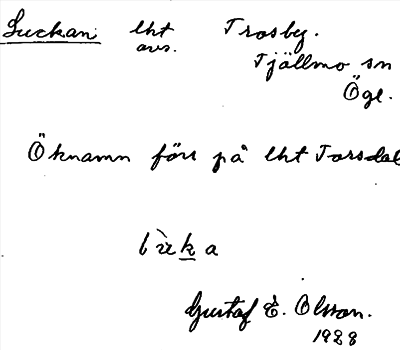 Luckan lht Trosby.
avs. Tjällmo sn
Ögl.
Öknamn förr på lht Torsdal
Gustaf E. Olsson.
1928